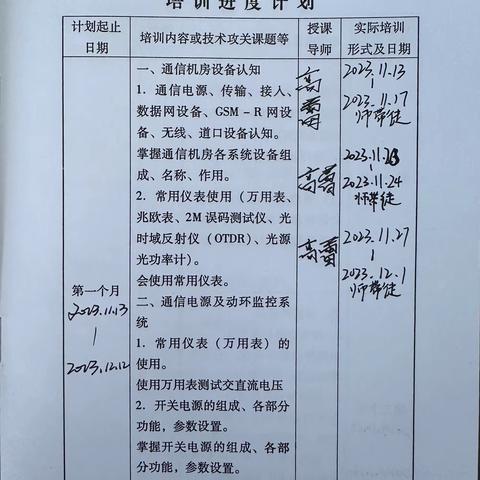 培训进度计划
计划起止
日期
培训内容或技术攻关课题等
授课
导师
实际培训
形式及日期
第一个月
2023.11.13
|
2023.12.12
一、通信机房设备认知
1. 通信电源、传输、接入、
数据网设备、GSM-R 网设
备、无线、道口设备认知。
掌握通信机房各系统设备组
成、名称、作用。
2. 常用仪表使用(万用表、
兆欧表、2M 误码测试仪、光
时域反射仪(OTDR)、光源
光功率计)。
会使用常用仪表。
二、通信电源及动环监控系
统
1. 常用仪表(万用表)的
使用。
使用万用表测试交直流电压
2. 开关电源的组成、各部分
功能,参数设置。
掌握开关电源的组成、各部
分功能,参数设置。
高
雷
高雷
高雷
2023.11.13
|
2023.11.17
师带徒
|
2023.11.24
师带徒
2023.11.27
|
2023.12.1
师带徒